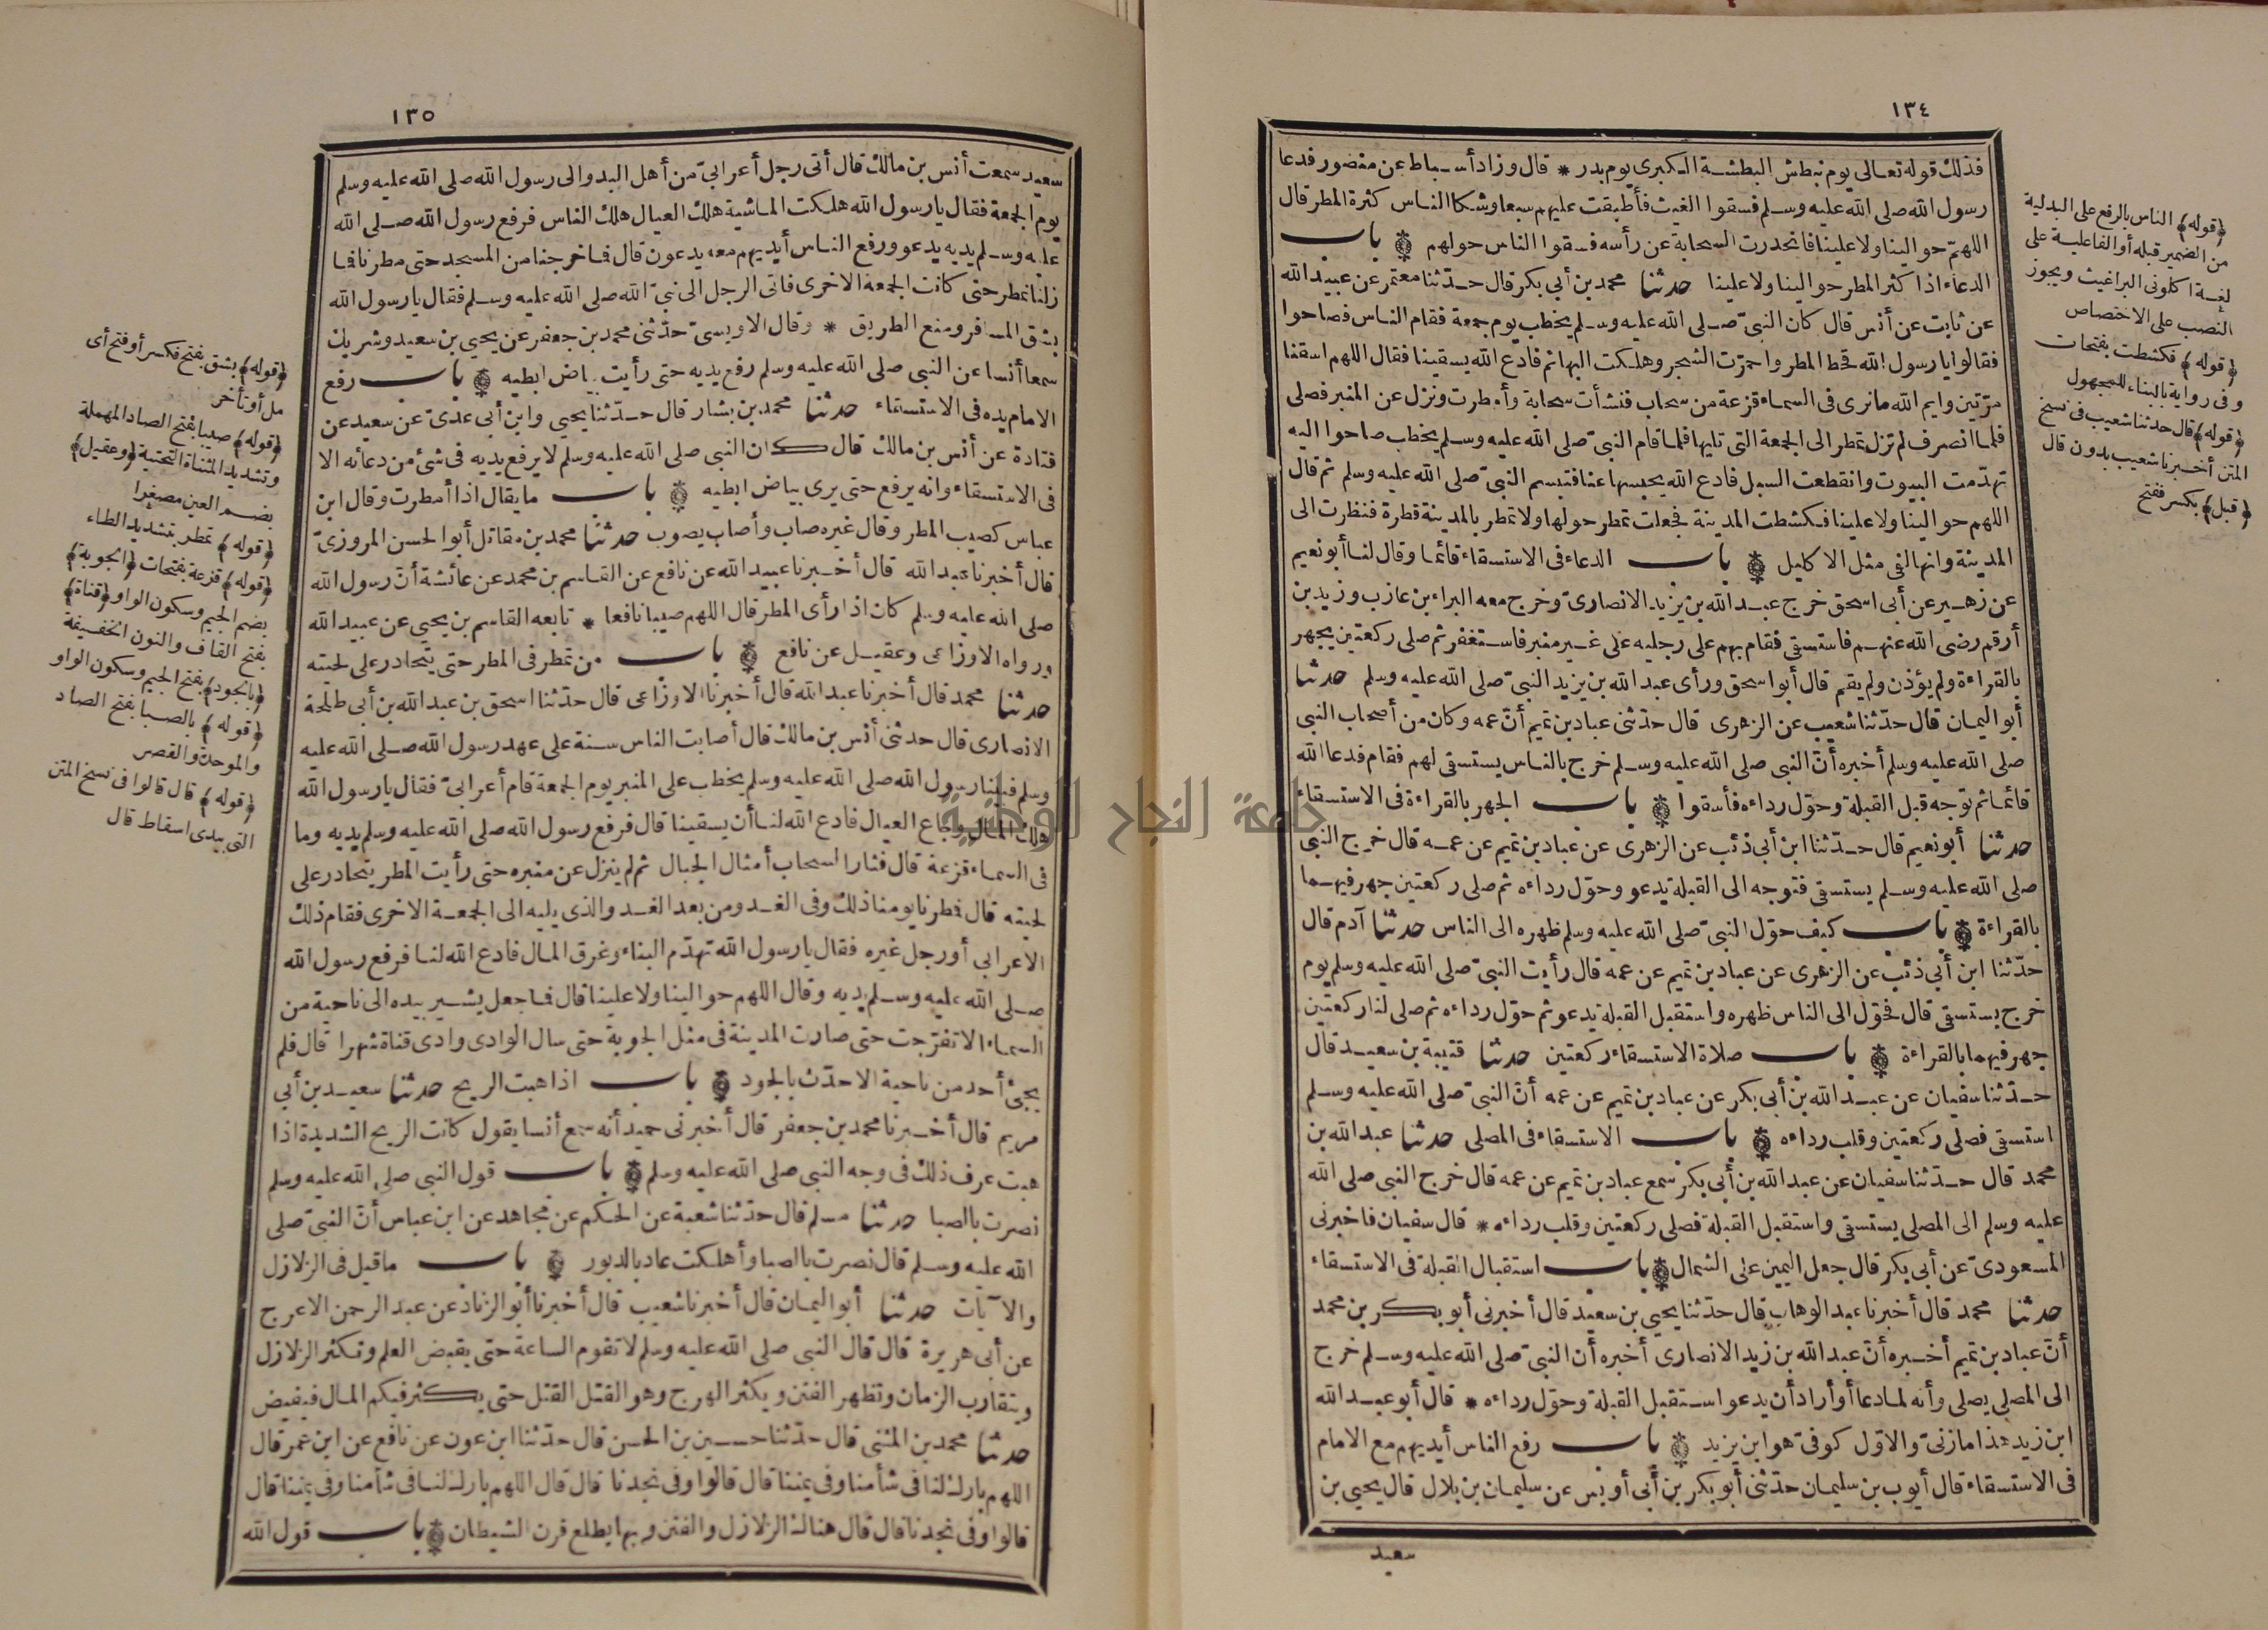 ١٣٤
فذلك قوله تعالى يوم نبطش البطشة الكبرى يوم بدر * قال وزاد أسباط عن منصور فدعا
رسول الله صلى الله عليه وسلم فسقوا الغيث فأطبقت عليهم سبعا وشكا الناس كثرة المطر قال
اللهمّ حوالينا ولا علينا فانحدرت السحابة عن رأسه فسقوا الناس حولهم باب
الدعاء اذا كثر المطر حوالينا ولا علينا حدثنا محمد بن أبي بكر قال حدّثنا معتمر عن عبيد الله
عن ثابت عن أنس قال كان النبيّ صلى الله عليه وسلم يخطب يوم جمعة فقام الناس فصاحوا
فقالوا يا رسول الله قحط المطر واحمرّت الشجر وهلكت البهائم فادع الله يسقينا فقال اللهم اسقنا
مرّتين وايم الله ما نرى في السماء قزعة من سحاب فنشأت سحابة وأمطرت ونزل عن المنبر فصلى
فلما انصرف لم تزل تمطر الى الجمعة التي تليها فلما قام النبيّ صلى الله عليه وسلم يخطب صاحوا اليه
تهدّمت البيوت وانقطعت السبل فادع الله يحبسها عنا فتبسم النبيّ صلى الله عليه وسلم ثم قال
اللهم حوالينا ولا علينا فكشطت المدينة فجعلت تمطر حولها ولا تمطر بالمدينة قطرة فنظرت الى
المدينة وانها لفي مثل الاكليل باب الدعاء في الاستسقاء قائما وقال لنا أبو نعيم
عن زهير عن أبي اسحق خرج عبد الله بن يزيد الانصاريّ وخرج معه البراء بن عازب وزيد بن
أرقم رضى الله عنهم فاستسقى فقام بهم على رجليه على غير منبر فاستغفر ثم صلى ركعتين يجهر
بالقراءة ولم يؤذن ولم يقم قال أبو اسحق ورأى عبد الله بن يزيد النبيّ صلى الله عليه وسلم حدثنا
أبو اليمان قال حدّثنا شعيب عن الزهرى قال حدّثنى عباد بن تميم أنّ عمه وكان من أصحاب النبي
صلى الله عليه وسلم أخبره أنّ النبي صلى الله عليه وسلم خرج بالناس يستسقى لهم فقام فدعا الله
قائما ثم توجه قبل القبلة وحوّل رداءه فأسقوا باب الجهر بالقراءة في الاستسقاء
حدثنا أبو نعيم قال حدّثنا ابن أبي ذئب عن الزهرى عن عباد بن تميم عن عمه قال خرج النبي
صلى الله عليه وسلم يستسقى فتوجه الى القبلة يدعو وحوّل رداءه ثم صلى ركعتين جهر فيهما
بالقراءة باب كيف حوّل النبيّ صلى الله عليه وسلم ظهره الى الناس حدثنا آدم قال
حدّثنا ابن أبي ذئب عن الزهرى عن عباد بن تميم عن عمه قال رأيت النبيّ صلى الله عليه وسلم يوم
خرج يستسقى قال فحوّل الى الناس ظهره واستقبل القبلة يدعو ثم حوّل رداءه ثم صلى لنا ركعتين
جهر فيهما بالقراءة باب صلاة الاستسقاء ركعتين حدثنا قتيبة بن سعيد قال
حدّثنا سفيان عن عبد الله بن أبي بكر عن عباد بن تميم عن عمه أنّ النبيّ صلى الله عليه وسلم
استسقى فصلى ركعتين وقلب رداءه باب الاستسقاء في المصلى حدثنا عبد الله بن
محمد قال حدّثنا سفيان عن عبد الله بن أبي بكر سمع عباد بن تميم عن عمه قال خرج النبي صلى الله
عليه وسلم الى المصلى يستسقى واستقبل القبلة فصلى ركعتين وقلب رداءه * قال سفيان فاخبرنى
المسعودىّ عن أبي بكر قال جعل اليمين على الشمال باب استقبال القبلة في الاستسقاء
حدثنا محمد قال أخبرنا عبد الوهاب قال حدّثنا يحيى بن سعيد قال أخبرنى أبو بكر بن محمد
أنّ عباد بن تميم أخبره أنّ عبد الله بن زيد الانصارى أخبره أنّ النبيّ صلى الله عليه وسلم خرج
الى المصلى يصلى وأنه لما دعا أو أراد أن يدعو استقبل القبلة وحوّل رداءه * قال أبو عبد الله
ابن زيد هذا مازنىّ والاوّل كوفىّ هو ابن يزيد باب رفع الناس أيديهم مع الامام
في الاستسقاء قال أيوب بن سليمان حدّثنى أبو بكر بن أبي أويس عن سليمان بن بلال قال يحيى بن
سعيد
﴿قوله﴾ الناس بالرفع على البدلية
من الضمير قبله أو الفاعلية على
لغة اكلونى البراغيث ويجوز
النصب على الاختصاص
﴿قوله﴾ فكشطت بفتحات
وفى رواية بالبناء للمجهول
﴿قوله﴾ قال حدثنا شعيب فى نسخ
المتن أخبرنا شعيب بدون قال
﴿قبل﴾ بكسر ففتح
١٣٥
سعيد سمعت أنس بن مالك قال أتى رجل أعرابيّ من أهل البدو الى رسول الله صلى الله عليه وسلم
يوم الجمعة فقال يا رسول الله هلكت الماشية هلك العيال هلك الناس فرفع رسول الله صلى الله
عليه وسلم يديه يدعو ورفع الناس أيديهم معه يدعون قال فما خرجنا من المسجد حتى مطرنا فما
زلنا نمطر حتى كانت الجمعة الاخرى فاتى الرجل الى نبيّ الله صلى الله عليه وسلم فقال يا رسول الله
بشق المسافر ومنع الطريق * وقال الاويسىّ حدّثنى محمد بن جعفر عن يحيى بن سعيد وشريك
سمعا أنسا عن النبي صلى الله عليه وسلم رفع يديه حتى رأيت بياض ابطيه باب رفع
الامام يده فى الاستسقاء حدثنا محمد بن بشار قال حدّثنا يحيى وابن أبي عدىّ عن سعيد عن
قتادة عن أنس بن مالك قال كان النبي صلى الله عليه وسلم لا يرفع يديه فى شئ من دعائه الا
فى الاستسقاء وانه يرفع حتى يرى بياض ابطيه باب ما يقال اذا أمطرت وقال ابن
عباس كصيب المطر وقال غيره صاب وأصاب يصوب حدثنا محمد بن مقاتل أبو الحسن المروزىّ
قال أخبرنا عبد الله قال أخبرنا عبيد الله عن نافع عن القاسم بن محمد عن عائشة أنّ رسول الله
صلى الله عليه وسلم كان اذا رأى المطر قال اللهم صيبا نافعا * تابعه القاسم بن يحيى عن عبيد الله
ورواه الاوزاعى وعقيل عن نافع باب من تمطر فى المطر حتى يتحادر على لحيته
حدثنا محمد قال أخبرنا عبد الله قال أخبرنا الاوزاعى قال حدّثنا اسحق بن عبد الله بن أبي طلحة
الانصارى قال حدثنى أنس بن مالك قال أصابت الناس سنة على عهد رسول الله صلى الله عليه
وسلم فبينا رسول الله صلى الله عليه وسلم يخطب على المنبر يوم الجمعة قام أعرابىّ فقال يا رسول الله
هلك المال وجاع العيال فادع الله لنا أن يسقينا قال فرفع رسول الله صلى الله عليه وسلم يديه وما
فى السماء قزعة قال فثار السحاب أمثال الجبال ثم لم ينزل عن منبره حتى رأيت المطر يتحادر على
لحيته قال فمطرنا يومنا ذلك وفى الغد ومن بعد الغد والذى يليه الى الجمعة الاخرى فقام ذلك
الاعرابي أو رجل غيره فقال يا رسول الله تهدّم البناء وغرق المال فادع الله لنا فرفع رسول الله
صلى الله عليه وسلم يديه وقال اللهم حوالينا ولا علينا قال فما جعل يشير بيده الى ناحية من
السماء الا تفرّجت حتى صارت المدينة فى مثل الجوبة حتى سال الوادى وادى قناة شهرا قال فلم
يجئ أحد من ناحية الا حدّث بالجود باب اذا هبت الريح حدثنا سعيد بن أبي
مريم قال أخبرنا محمد بن جعفر قال أخبرنى حميد أنه سمع أنسا يقول كانت الريح الشديدة اذا
هبت عرف ذلك فى وجه النبي صلى الله عليه وسلم باب قول النبي صلى الله عليه وسلم
نصرت بالصبا حدثنا مسلم قال حدّثنا شعبة عن الحكم عن مجاهد عن ابن عباس أنّ النبيّ صلى
الله عليه وسلم قال نصرت بالصبا وأهلكت عاد بالدبور باب ما قيل فى الزلازل
والآيات حدثنا أبو اليمان قال أخبرنا شعيب قال أخبرنا أبو الزناد عن عبد الرحمن الاعرج
عن أبي هريرة قال قال النبي صلى الله عليه وسلم لا تقوم الساعة حتى يقبض العلم وتكثر الزلازل
ويتقارب الزمان وتظهر الفتن ويكثر الهرج وهو القتل القتل حتى يكثر فيكم المال فيفيض
حدثنا محمد بن المثنى قال حدّثنا حسين بن الحسن قال حدّثنا ابن عون عن نافع عن ابن عمر قال
اللهم بارك لنا فى شأمنا وفى يمننا قال قالوا وفى نجدنا قال قال اللهم بارك لنا فى شأمنا وفى يمننا قال
قالوا وفى نجدنا قال قال هناك الزلازل والفتن وبها يطلع قرن الشيطان باب قول الله
﴿قوله﴾ بشق بفتح فكسر أو فتح أى
مل أو تأخر
﴿قوله﴾ صيبا بفتح الصاد المهملة
وتشديد المثناة التحتية ﴿وعقيل﴾
بضم العين مصغرا
﴿قوله﴾ تمطر بتشديد الطاء
﴿قوله﴾ قزعة بفتحات ﴿الجوبة﴾
بضم الجيم وسكون الواو ﴿قناة﴾
بفتح القاف والنون الخفيفة
﴿بالجود﴾ بفتح الجيم وسكون الواو
﴿قوله﴾ بالصبا بفتح الصاد
والموحدة والقصر
﴿قوله﴾ قال قالوا فى نسخ المتن
التى بيدى اسقاط قال
جامعة النجاح الوطنية